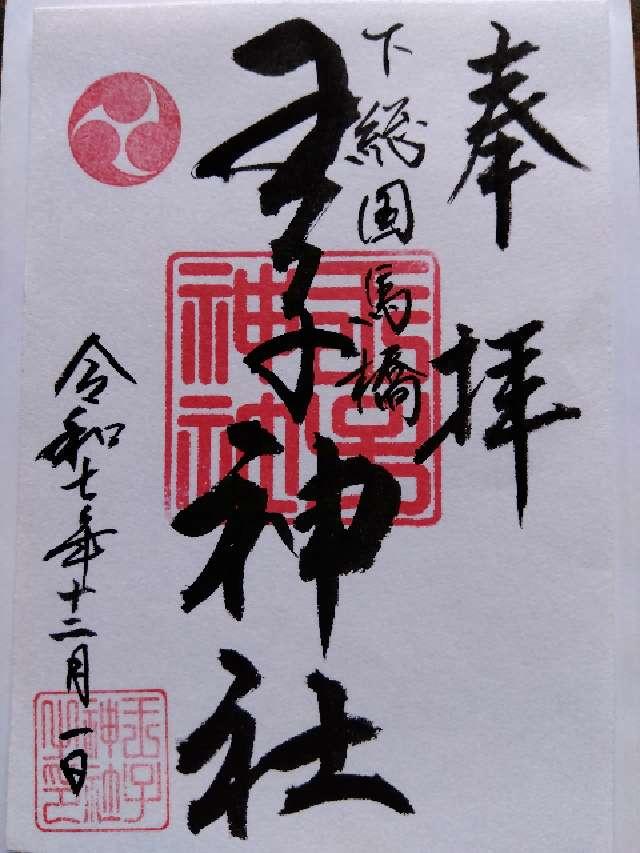 奉拝
下総国馬橋
王子神社
令和七年十二月一日
王子
神社
王子
神社
之印